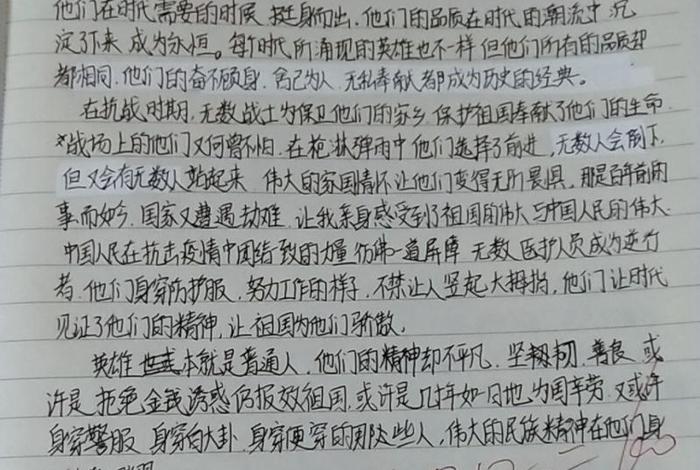 他们在时代需要的时候 挺身而出,他们的品质在时代的潮流中 沉
淀了下来 成为永恒。每个时代所涌现的英雄也不一样 但他们所有的品质却
都相同,他们的奋不顾身,舍己为人,无私奉献者都成为历史的经典。
在抗战时期,无数战士为保卫他们的家乡,保护祖国奉献了他们的生命
战场上的他们又何曾不怕,在枪淋弹雨中他们选择了前进,无数人会倒下,
但又会有无数人站起来 伟大的家国情怀让他们变得无所畏惧,那是百年前的
事,而如今,国家又遭遇劫难,让我亲身感受到了祖国的伟大与中国人民的伟大.
中国人民在抗击疫情中团结一致的力量 仿佛一道屏障 无数医护人员成为逆行
者,他们身穿防护服,努力工作的样子,不禁让人竖起大拇指,他们让时代
见证了他们的精神,让祖国为他们骄傲,
英雄 本就是普通人,他们的精神却不平凡,坚韧,善良,或
许是 拒绝金钱诱惑仍报效祖国,或许是几十年如一日地为国辛劳,又或许
身穿警服 身穿白大卦 身穿便穿的那些人,伟大的民族精神在他们身